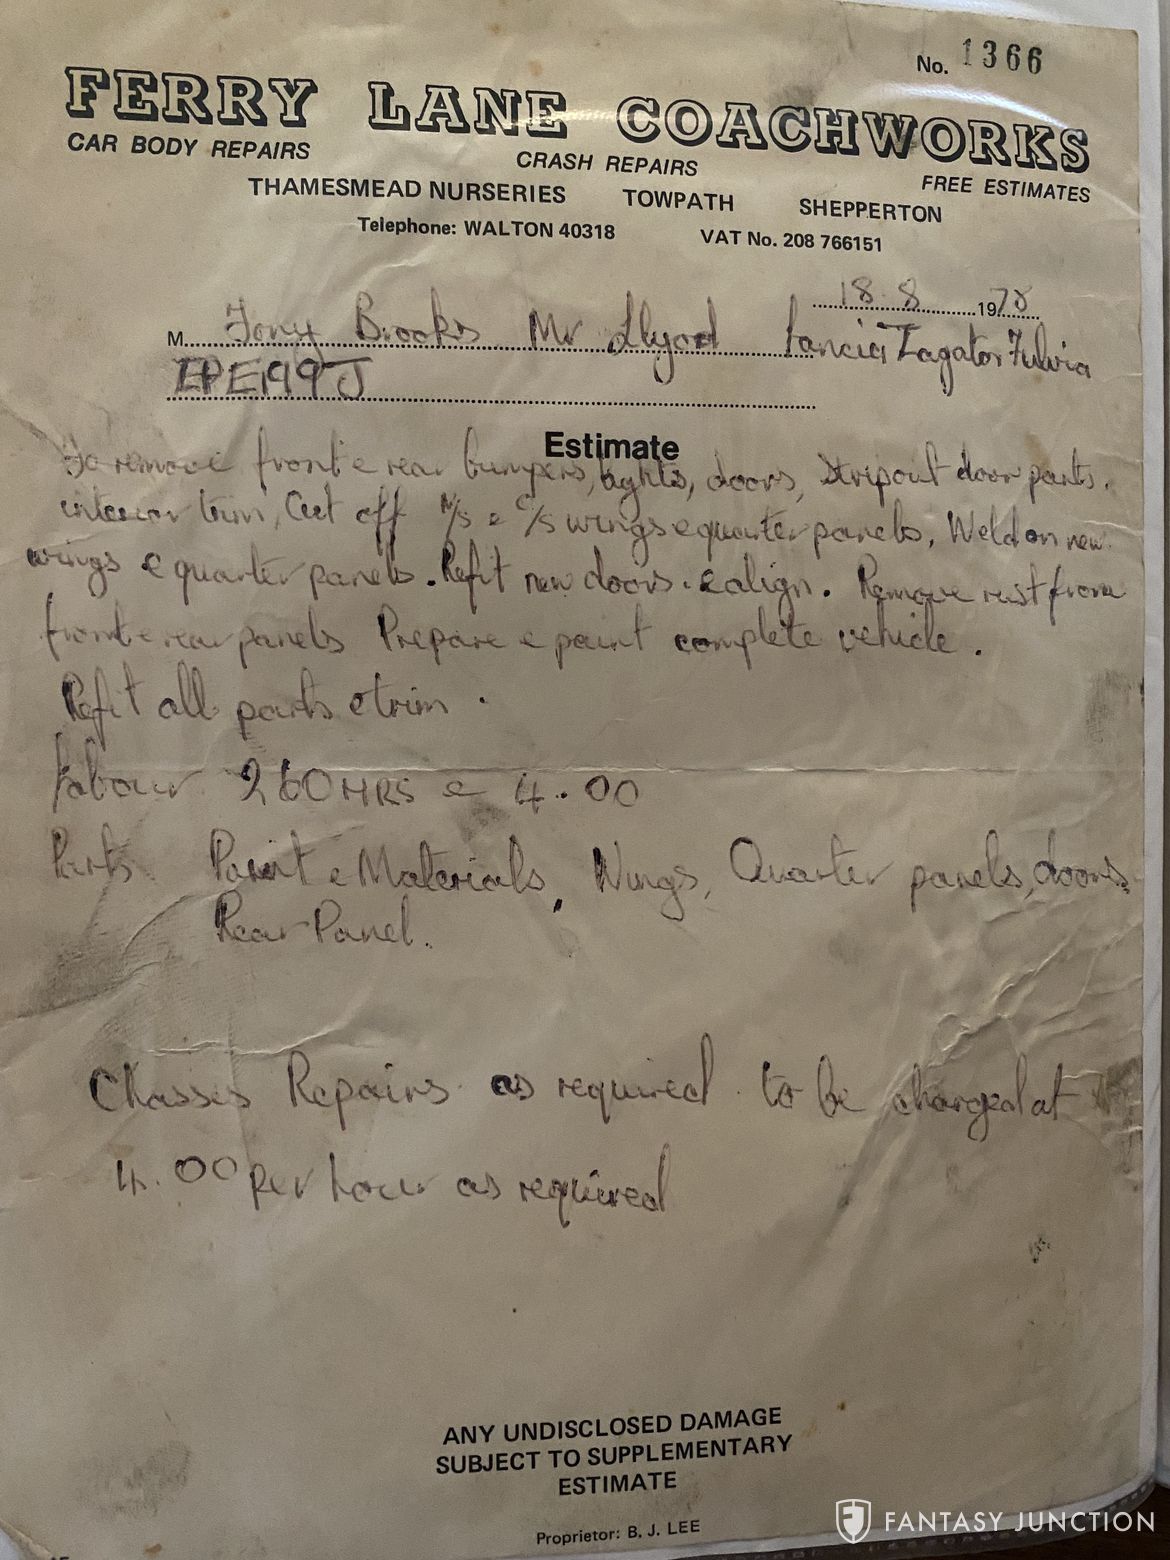 No. 1366
FERRY LANE COACHWORKS
CAR BODY REPAIRS CRASH REPAIRS FREE ESTIMATES
THAMESMEAD NURSERIES TOWPATH SHEPPERTON
Telephone: WALTON 40318 VAT No. 208 766151
18 8 1978
M. Tony Brooks Mr Llyod Lancia Zagator Fulvia
EPE199J
Estimate
To remove front e rear bumpers, lights, doors, Stripout door parts,
interior trim, Cut off N/S e O/S wings e quarter panels, Weld on new
wings e quarter panels. Refit new doors e align. Remove rust from
front e rear panels Prepare e paint complete vehicle.
Refit all parts e trim.
Labour 260 HRS e 4.00
Parts Paint e Materials, Wings, Quarter panels, doors,
Rear Panel.
Chasses Repairs as required to be charged at
4.00 per hour as required
ANY UNDISCLOSED DAMAGE
SUBJECT TO SUPPLEMENTARY
ESTIMATE
Proprietor: B. J. LEE
FANTASY JUNCTION